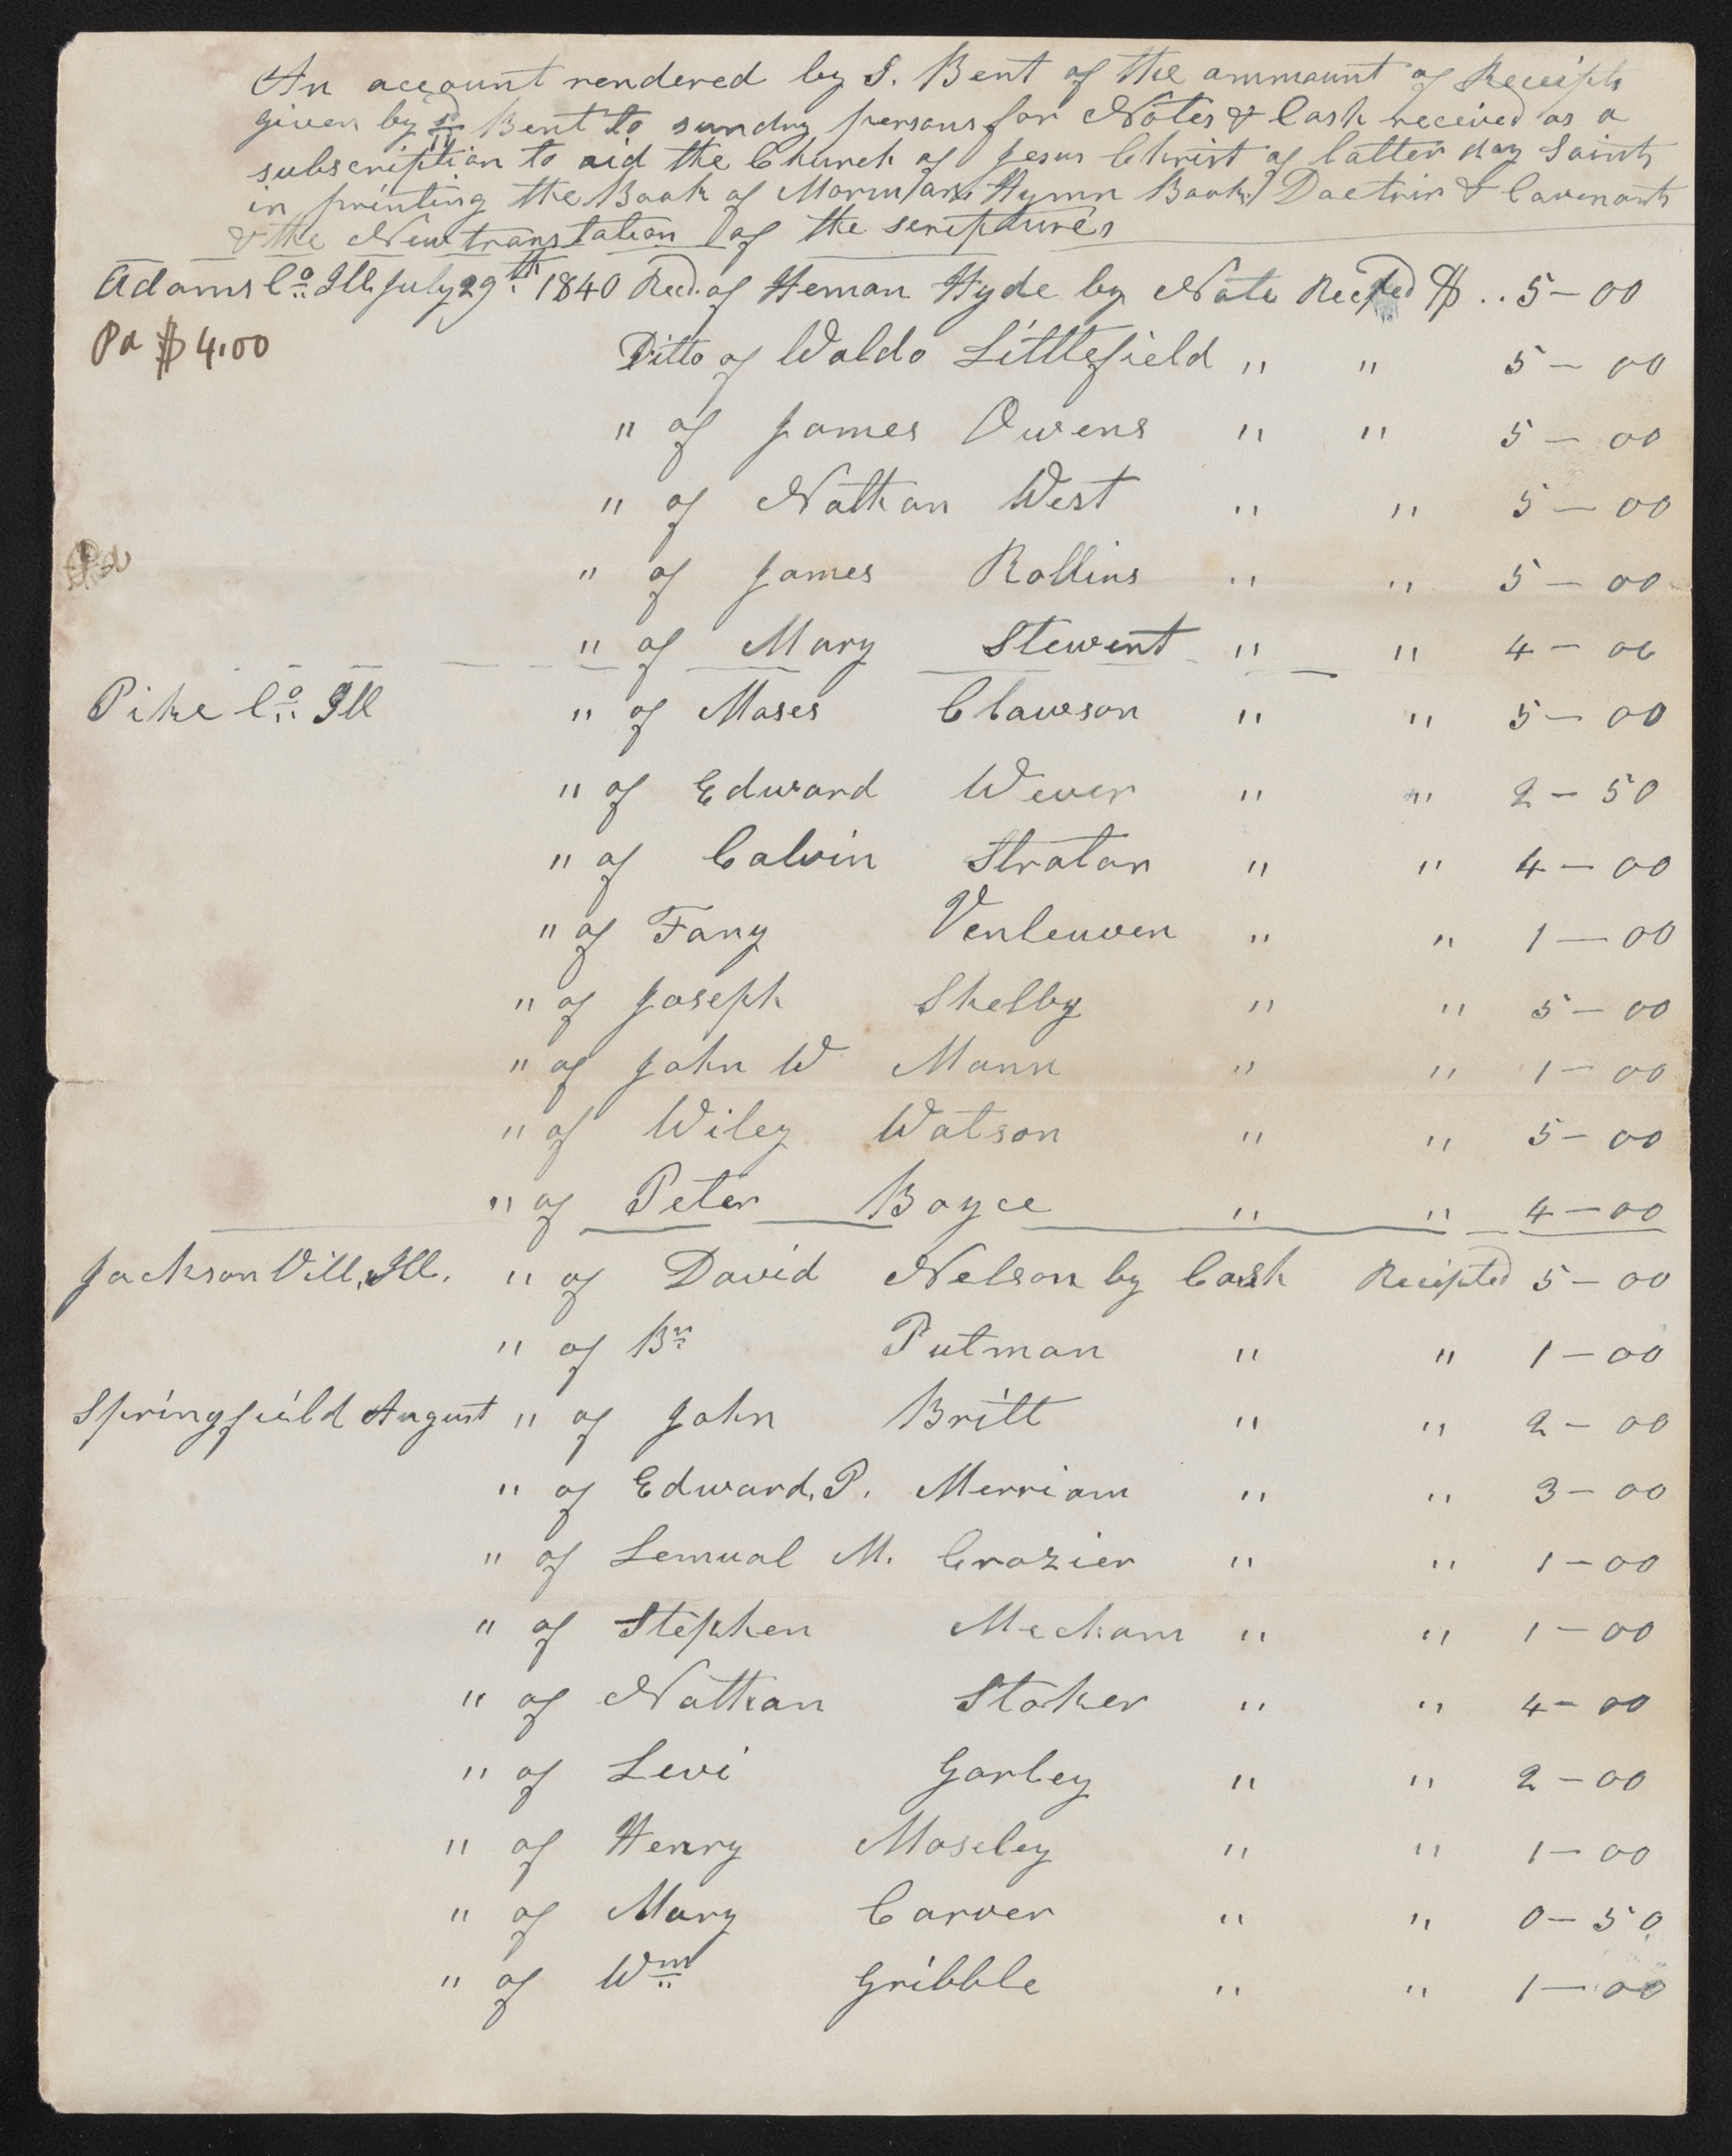 An account rendered by S. Bent of the ammount of Receipts
given by sd Bent to sundry persons for Notes & Cash received as a
subscription to aid the Church of Jesus Christ of latter day Saints
in printing the Book of Mormon Hymn Book Doctrin & Covenants
& the New translation of the scriptures
Adams Co Ill. July 29th 1840 Recd. of Heman Hyde by Note Recpted $ .. 5-00
Pd $4.00
Ditto of Waldo Littlefield " " 5-00
" of James Owens " " 5-00
" of Nathan West " " 5-00
Pd
" of James Rollins " " 5-00
" of Mary Stewent " " 4-00
Pike Co Ill " of Moses Clawson " " 5-00
" of Edward Wever " " 2-50
" of Calvin Straton " " 4-00
" of Fany Venleuven " " 1-00
" of Joseph Shelby " " 5-00
" of John W Mann " " 1-00
" of Wiley Watson " " 5-00
" of Peter Boyce " " 4-00
Jackson Vill, Ill. " of David Nelson by Cash Recipted 5-00
" of Br Putman " " 1-00
Springfield August " of John Britt " " 2-00
" of Edward. P. Merriam " " 3-00
" of Lemual M. Crozier " " 1-00
" of Stephen Mecham " " 1-00
" of Nathan Stoker " " 4-00
" of Levi Gorley " " 2-00
" of Henry Moseley " " 1-00
" of Mary Carver " " 0-50
" of Wm Gribble " " 1-00